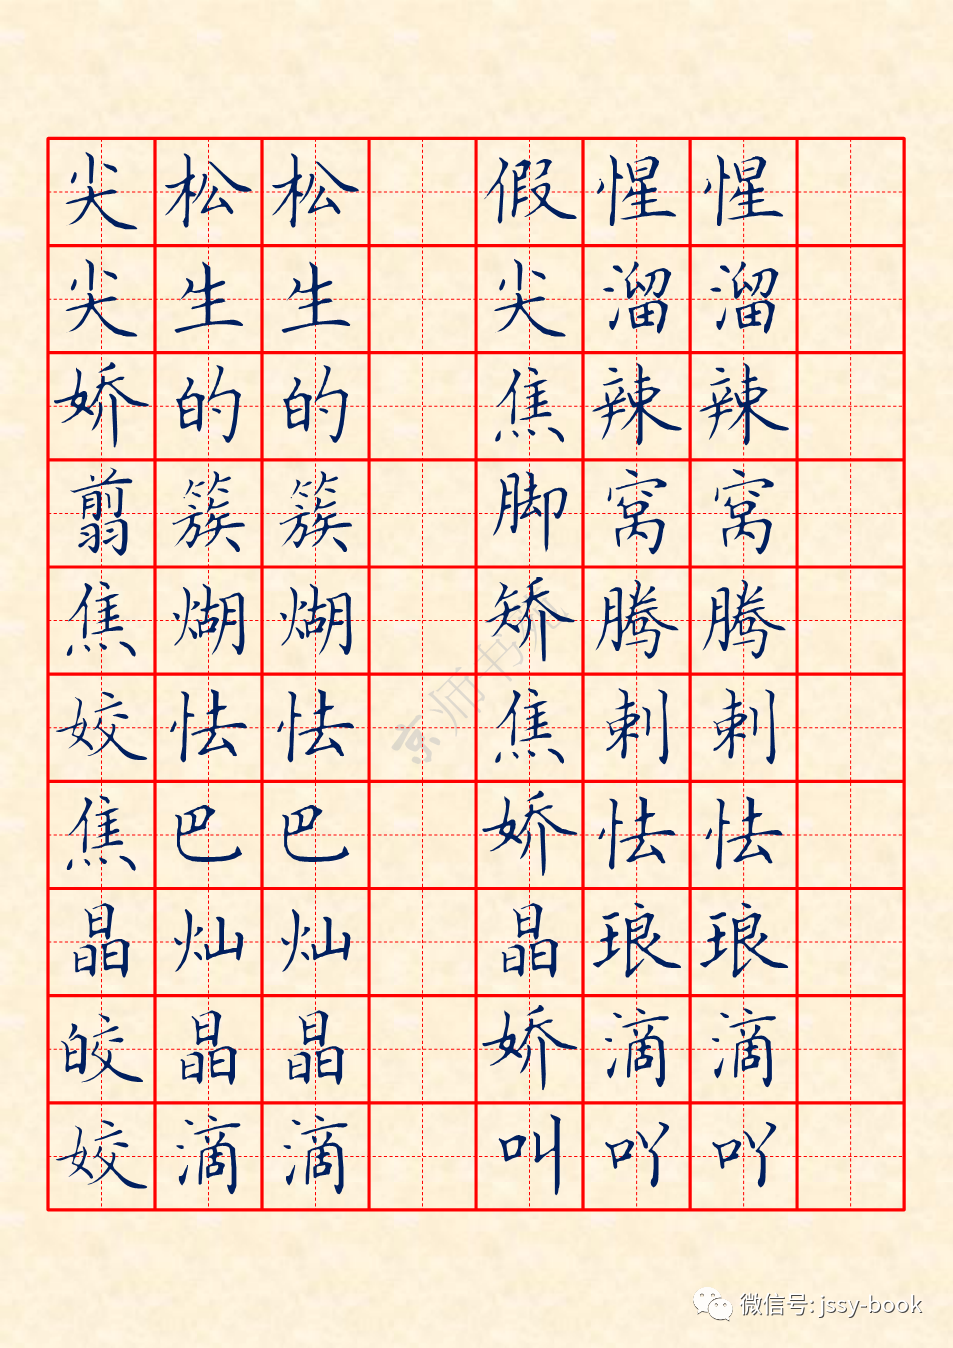 尖松松 假惺惺
尖生生 尖溜溜
娇的的 焦辣辣
翦簇簇 脚窝窝
焦煳煳 矫腾腾
姣怯怯 焦剌剌
焦巴巴 娇怯怯
晶灿灿 晶琅琅
皎晶晶 娇滴滴
姣滴滴 叫吖吖
微信号: jssy-book